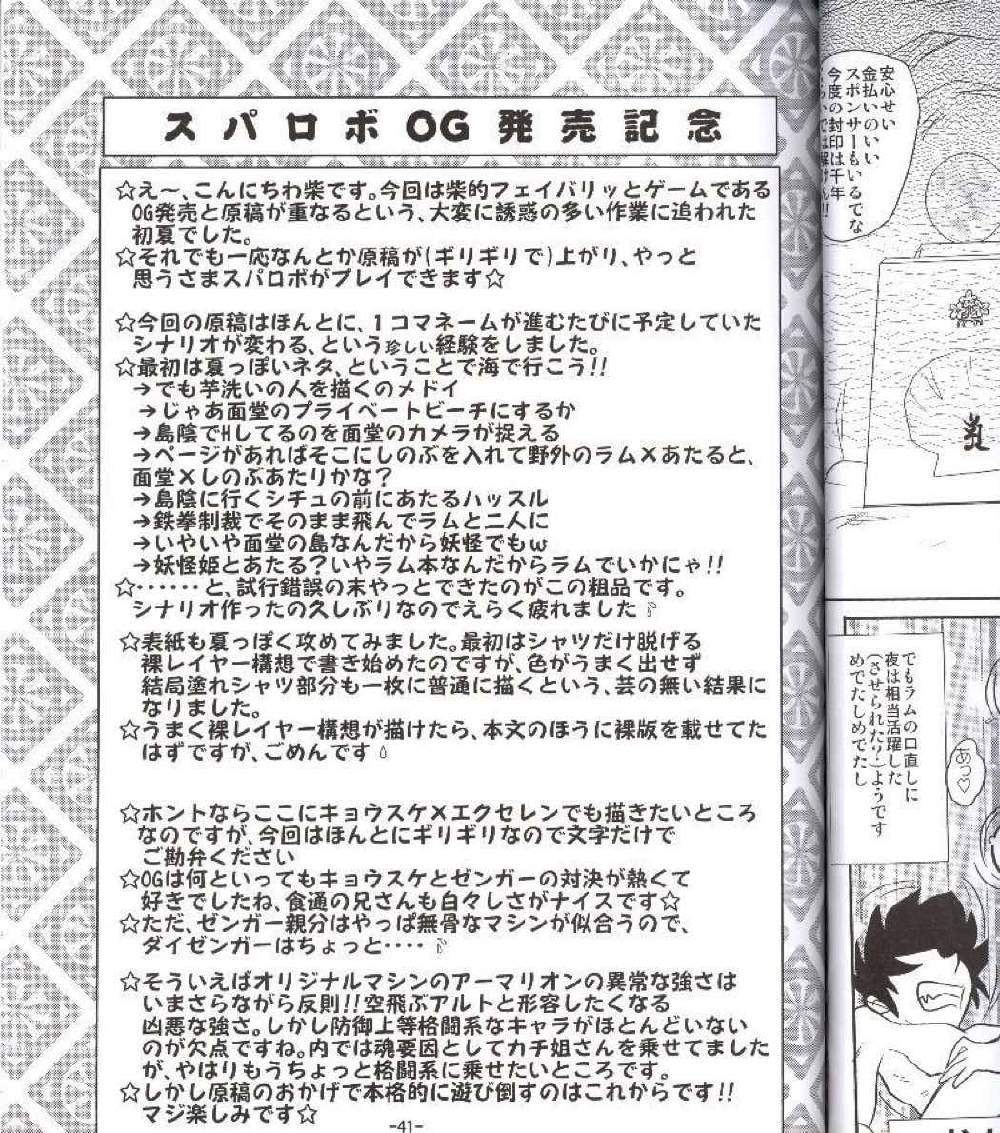 スパロボOG発売記念
☆え~、こんにちわ柴です。今回は柴的フェイバリッとゲームである
OG発売と原稿が重なるという、大変に誘惑の多い作業に追われた
初夏でした。
☆それでも一応なんとか原稿が(ギリギリで)上がり、やっと
思うさまスパロボがプレイできます☆
☆今回の原稿はほんとに、1コマネームが進むたびに予定していた
シナリオが変わる、という珍しい経験をしました。
☆最初は夏っぽいネタ、ということで海で行こう!!
→でも芋洗いの人を描くのメドイ
→じゃあ面堂のプライベートビーチにするか
→島陰でHしてるのを面堂のカメラが捉える
→ページがあればそこにしのぶを入れて野外のラム×あたると、
面堂×しのぶあたりかな?
→島陰に行くシチュの前にあたるハッスル
→鉄拳制裁でそのまま飛んでラムと二人に
→いやいや面堂の島なんだから妖怪でもw
→妖怪姫とあたる?いやラム本なんだからラムでいかにゃ!!
☆・・・・・・と、試行錯誤の末やっとできたのがこの粗品です。
シナリオ作ったの久しぶりなのでえらく疲れました
☆表紙も夏っぽく攻めてみました。最初はシャツだけ脱げる
裸レイヤー構想で書き始めたのですが、色がうまく出せず
結局塗れシャツ部分も一枚に普通に描くという、芸の無い結果に
なりました。
☆うまく裸レイヤー構想が描けたら、本文のほうに裸版を載せてた
はずですが、ごめんです
☆ホントならここにキョウスケ×エクセレンでも描きたいところ
なのですが、今回はほんとにギリギリなので文字だけで
ご勘弁ください
☆OGは何といってもキョウスケとゼンガーの対決が熱くて
好きでしたね、食通の兄さんも白々しさがナイスです☆
☆ただ、ゼンガー親分はやっぱ無骨なマシンが似合うので、
ダイゼンガーはちょっと・・・・
☆そういえばオリジナルマシンのアーマリオンの異常な強さは
いまさらながら反則!!空飛ぶアルトと形容したくなる
凶悪な強さ。しかし防御上等格闘系なキャラがほとんどいない
のが欠点ですね。内では魂要因としてカチ姐さんを乗せてました
が、やはりもうちょっと格闘系に乗せたいところです。
☆しかし原稿のおかげで本格的に遊び倒すのはこれからです!!
マジ楽しみです☆
-41-
安心せい
金払いのいい
スポンサーもいるでな
今度の封印は千年
でもラムの口直しに
夜は相当活躍した
(させられた?)ようです
めでたしめでたし
あっ♡